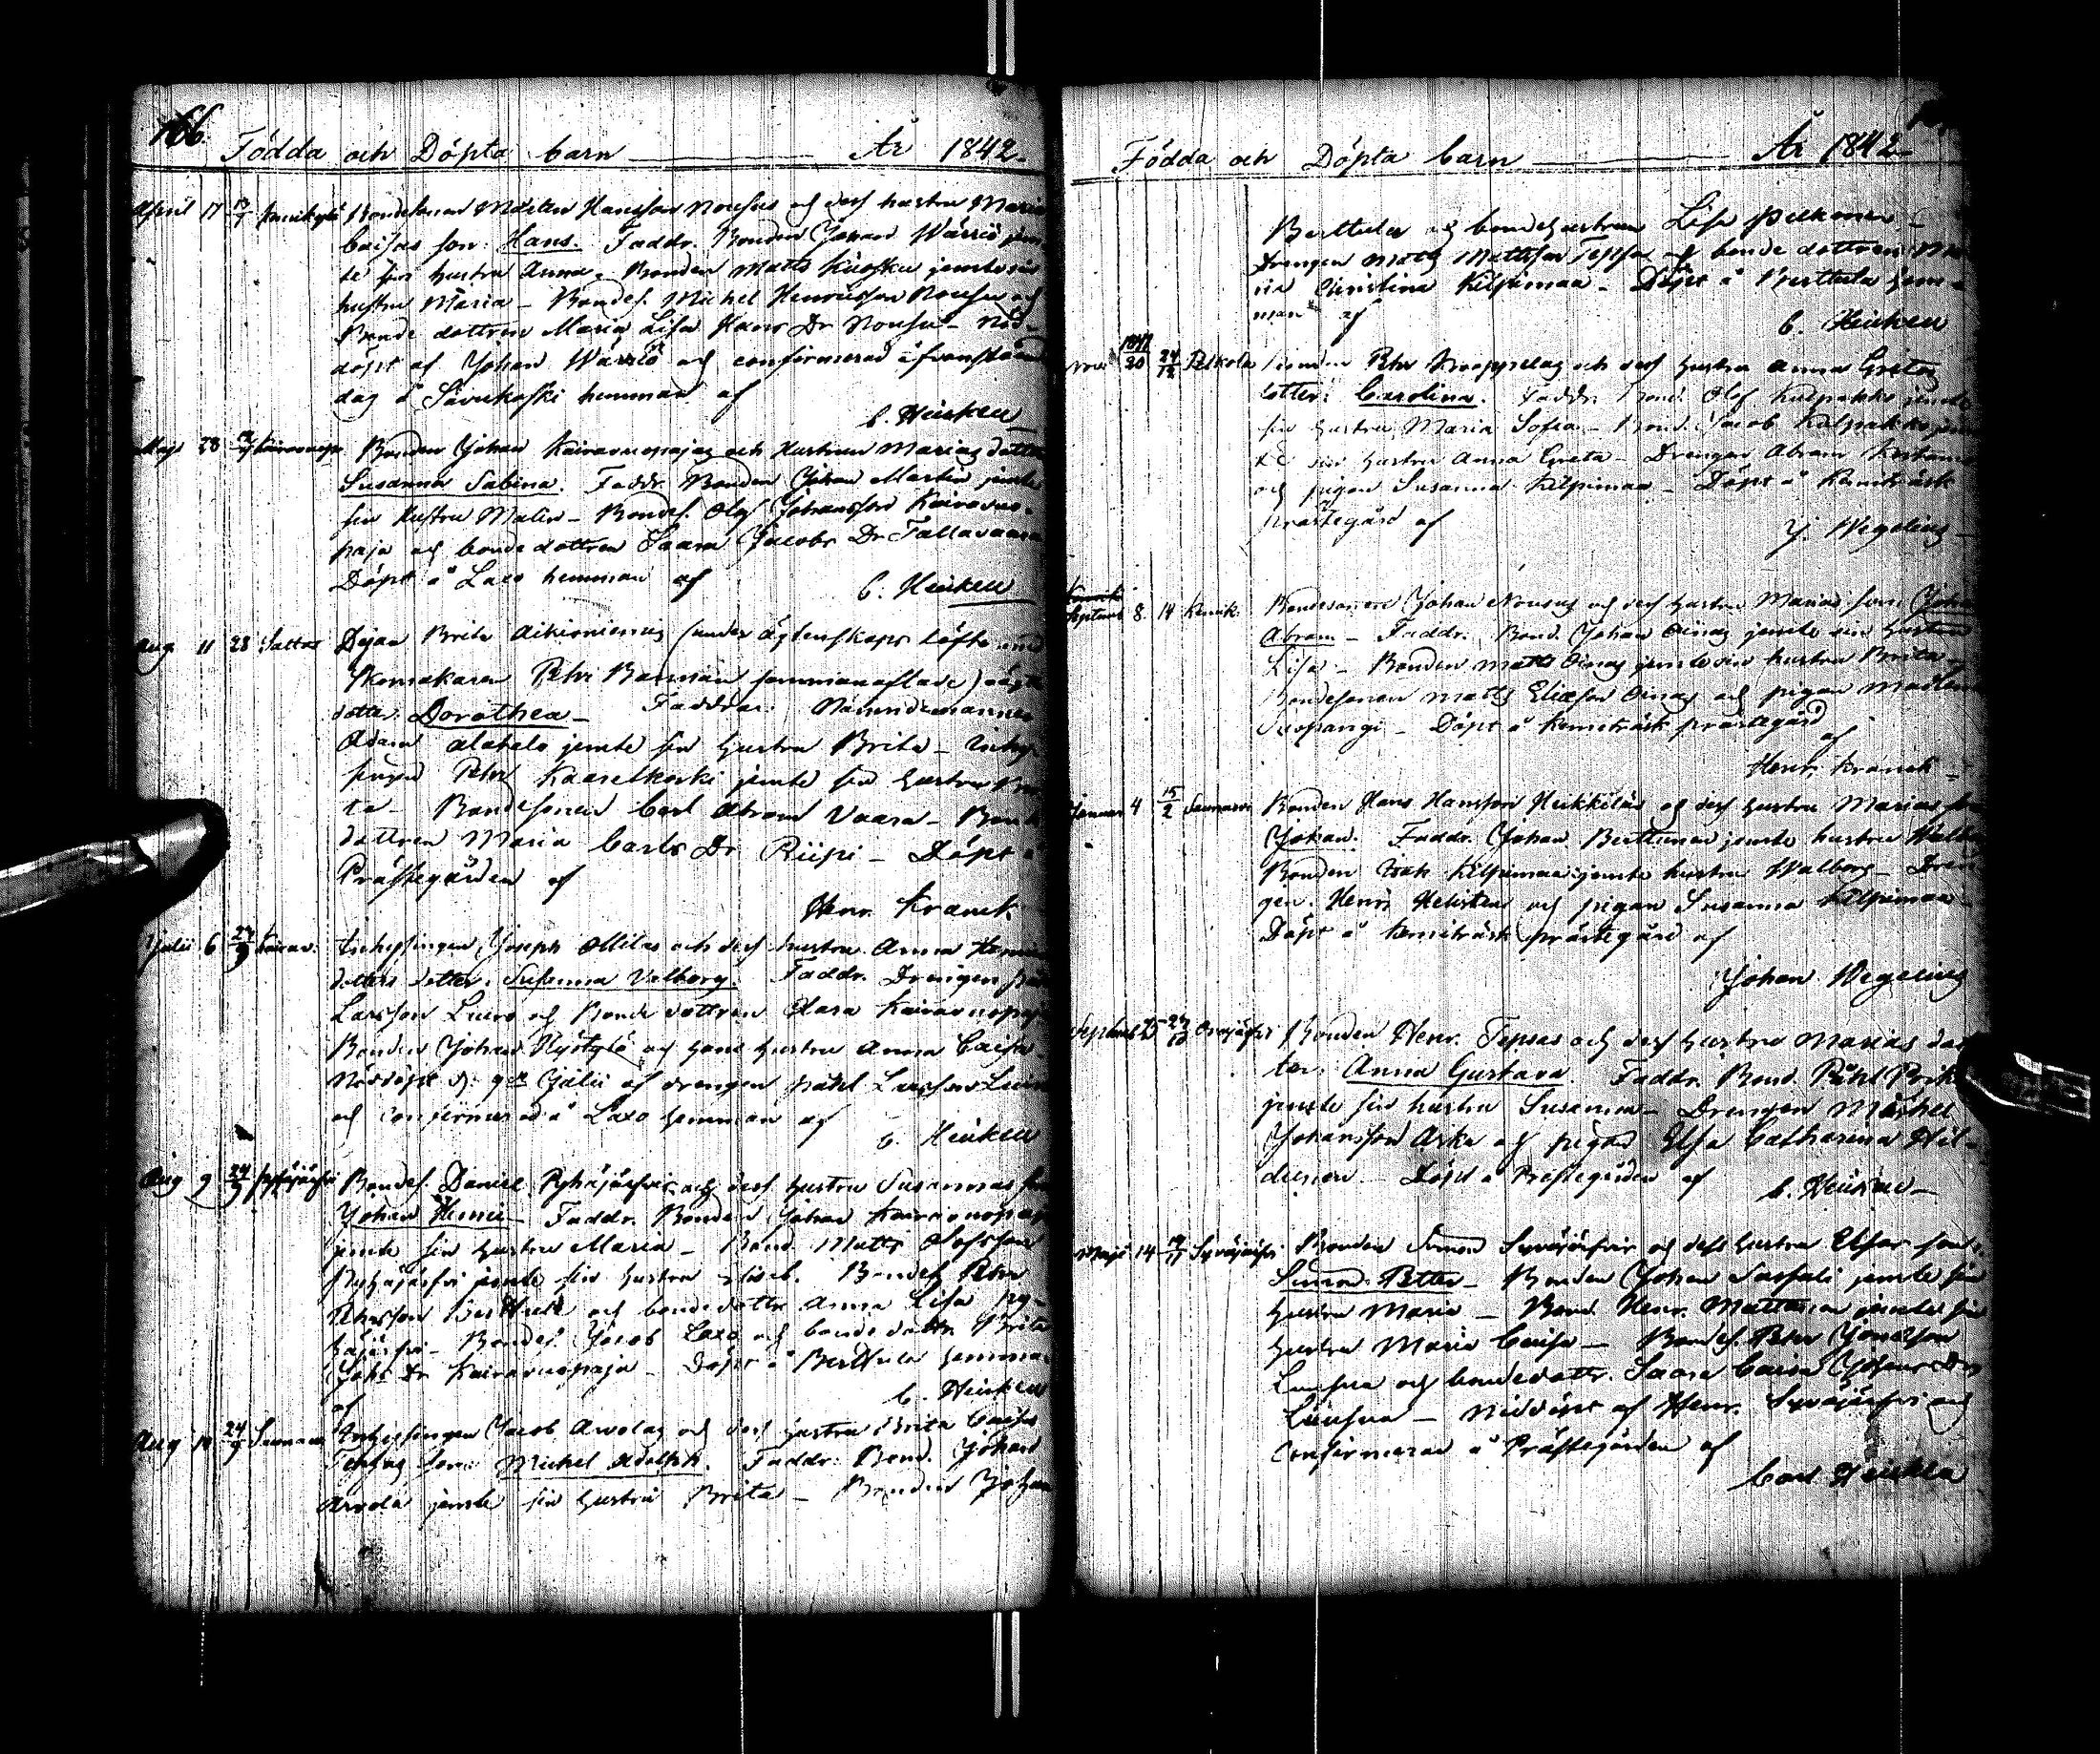 166.
Födda och Döpta barn År 1842.
April 17 Bondesonen Mårten Hansson Nousus och dess hustru Maria
Caisas son: Hans. Faddr. Bonden Johan Wärriö jem-
te sin hustru Anna. Bonden Matts jemte sin
hustru Maria – Bondes. Michel Henricsson Nousu och
Bonde dottren Maria Lisa Hans Dr Nousu – Nöd-
döpt af Johan Wärriö och confirmerad
dag å Savukoski hemman af
C. Heikel
Maji 28 Bonden Johan Kairavuopajas och Hustrun Marias dotter
Susanna Sabina. Faddr. Bonden Johan Martin jemte
sin Hustru Malin – Bondes. Olof Johansson Kairavuo-
paja och bonde dottren Saara Jacobs Dr Tallavaara
Döpt å Laxo hemman af C. Heikel
Aug. 11 28 Sattas Pigan Brita Aikioniemis (under ägtenskaps löfte med
Skomakaren Petr sammanaflade) oägta
dotter: Dorothea – Faddrar: Nämndemannen
Adam Alatalo jemte sin hustru Brita – Inhys-
singen Petr Kaaretkoski jemte sin hustru Bri-
ta – Bondesonen Carl Abram Vaara – Bonde
dottren Maria Carls Dr Riipi – Döpt å
Prästegården af
Henr. Kranck
Julii 6 24/9 Inhysingen Joseph Ollilas och dess hustru Anna
dotters dotter: Susanna Valborg. Faddr. Drengen Påhl
Larsson Luiro och Bonde dottren Clara Kairavuopaja
Bonden Johan Nystylö och hans hustru Anna Caisa –
Nöddöpt d. 9de Julii af drengen Påhl Larsson Luiro
och confirmerad å Laxo hemman af
C. Heikel
Aug 9 24/9 Pyhäjärfvi Bondes. Daniel Pyhäjärfvis och dess hustru Susannas son
Johan Faddr. Bonden Johan Kairavuopaja
jemte sin hustru Maria – Bond. Matts Olofsson
Pyhäjärfvi jemte sin hustru Elisab. Bondes. Petr
Petrsson och bondedottr. Anna Lisa Py-
häjärfvi – Bondes. Jacob Laxo och bonde dottr. Brita
Joh. Dr Kairavuopaja – Döpt å Berttula hemman
af C. Heikel
Aug 10 24/9 Inhysingen Jacob Arvolas och dess hustru Brita Caisas
son: Michel Adolph. Faddr: Bond. Johan
Arvola jemte sin hustru Brita – Bonden Johan
Födda och Döpta barn År 1842
Berttula och bondehustrun Lisa Pulkonen
Drengen Matts Mattsson Tepsa och bonde dottren Ma-
ria Christina Kilpimaa – Döpt å Berttula hem-
man af
C. Heikel
1841
Nov. 20 24/12 Pelkola Bonden Petr Knoppelas och dess hustru Anna Gretas
dotter: Carolina. Faddr. Bond. Olof Kulpakko jemte
sin hustru Maria Sofia – Bond. Jacob Kulpakko jem-
te sin hustru Anna Greta – Drengen Abram
och pigan Susanna Kilpimaa – Döpt å Kemiträsk
Prästegård af
J. Wegelius –
Septemb 8. 14 Kemik. Bondesonen Johan Nousus och dess hustru Marias son: Johan
Abram – Faddr. Bond. Johan Oinas jemte sin hustru
Lisa – Bonden Matts Oinas jemte sin hustru Brita –
Bondesonen Matts Eliæson Oinas och pigan Madlena
Suopangi – Döpt å Kemiträsk prästegård
af
Henr. Kranck –
Januari 4 15/2 Bonden Hans Hansson Heikkiläs och dess hustru Marias son
Johan. Faddr. Johan Berttunen jemte hustru
Bonden Isak Kilpimaa jemte hustru Walborg – Dren-
gen Henr. Helisten och pigan Susanna Kilpimaa –
Döpt å Kemiträsk prästegård af
Johan Wegelius
Septemb. 25 Orajärfvi Bonden Henr. Tepsas och dess hustru Marias dot-
ter: Anna Gustava. Faddr. Bond. Påhl
jemte sin hustru Susanna – Drengen Michel
Johansson Aska och pigan Elsa Catharina Hil-
dunen – Döpt å Prestegården af C. Heikel –
Maji 14 Syväjärfvi Bonden Simon Syväjärfvis och dess hustru Elsas son:
Simon Petter – Bonden Johan Sassali jemte sin
hustru Maria – Bond. Henr. Mattanen jemte sin
hustru Maria Caisa – Bondes. Petr Jonasson
Luusua och bondedottr. Saara Caisa Johans Dr
Luusua – Nöddöpt af Henr. Syväjärfvi och
confirmerad å Prästegården af
Carl Heikel